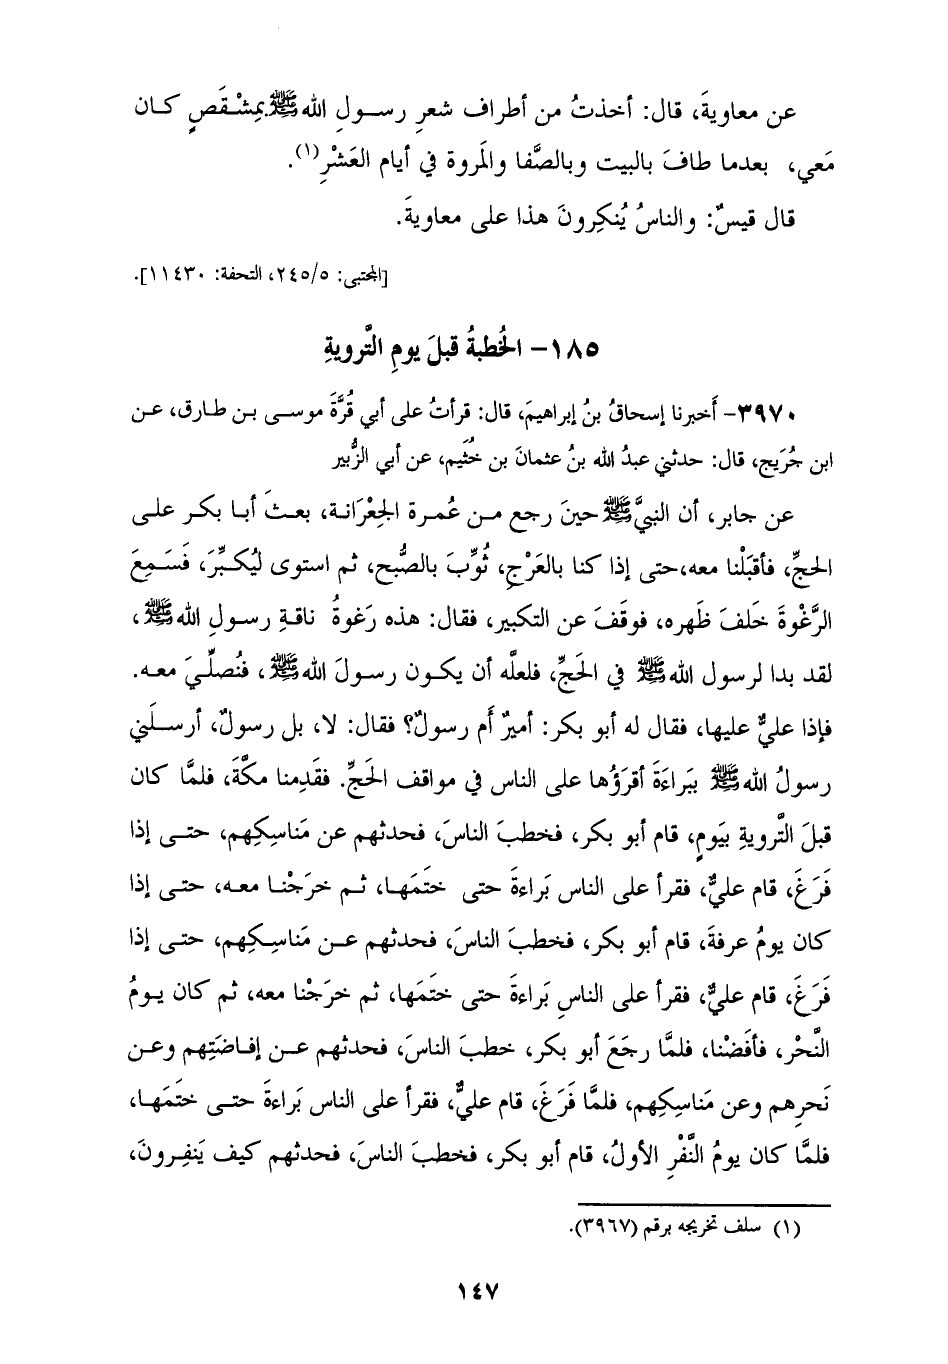 عن معاويةَ، قال: أخذتُ من أطراف شعرِ رسولِ الله ﷺ بمِشْقَصٍ كان
مَعي، بعدما طافَ بالبيت وبالصَّفا والمَروة في أيام العَشْرِ(١).
قال قيسٌ: والناسُ يُنكِرونَ هذا على معاويةَ.
[المجتبى: ٢٤٥/٥، التحفة: ١١٤٣٠].
١٨٥- الخُطبةُ قبلَ يومِ التَّرويةِ
٣٩٧٠- أَخبرنا إسحاقُ بنُ إبراهيمَ، قال: قرأتُ على أبي قُرَّةَ موسى بن طارق، عن
ابن جُرَيج، قال: حدثني عبدُ الله بنُ عثمانَ بن خُثَيم، عن أبي الزُّبير
عن جابر، أن النبيَّ ﷺ حينَ رجع من عُمرة الجِعْرَانة، بعثَ أبا بكر على
الحجِّ، فأقبَلْنا معه، حتى إذا كنا بالعَرْجِ، ثُوِّبَ بالصُّبح، ثم استوى ليُكبِّرَ، فَسَمِعَ
الرَّغْوةَ خَلفَ ظَهره، فوقَفَ عن التكبير، فقال: هذه رَغوةُ ناقةِ رسولِ الله ﷺ،
لقد بدا لرسول الله ﷺ في الحَجِّ، فلعلَّه أن يكون رسولَ الله ﷺ، فنُصلِّيَ معه.
فإذا عليٌّ عليها، فقال له أبو بكر: أميرٌ أَم رسولٌ؟ فقال: لا، بل رسولٌ، أرسلَني
رسولُ الله ﷺ ببَراءَةَ أقرَؤُها على الناس في مواقف الحَجِّ. فقَدِمنا مكَّةَ، فلمَّا كان
قبلَ التَّرويةِ بيَومٍ، قام أبو بكر، فخطبَ الناسَ، فحدثهم عن مَناسِكِهم، حتى إذا
فَرَغَ، قام عليٌّ، فقرأ على الناس بَراءةَ حتى ختَمَها، ثم خرَجْنا معه، حتى إذا
كان يومُ عرفةَ، قام أبو بكر، فخطبَ الناسَ، فحدثهم عن مَناسِكِهم، حتى إذا
فَرَغَ، قام عليٌّ، فقرأ على الناسِ بَراءةَ حتى ختَمَها، ثم خرَجْنا معه، ثم كان يومُ
النَّحْر، فأفَضْنا، فلمَّا رجَعَ أبو بكر، خطبَ الناسَ، فحدثهم عن إفاضَتِهم وعن
نَحرِهم وعن مَناسِكِهم، فلمَّا فَرَغَ، قام عليٌّ، فقرأ على الناس بَراءةَ حتى ختَمَها،
فلمَّا كان يومُ النَّفْرِ الأولُ، قام أبو بكر، فخطبَ الناسَ، فحدثهم كيف يَنفِرونَ،
(١) سلف تخريجه برقم (٣٩٦٧).
١٤٧